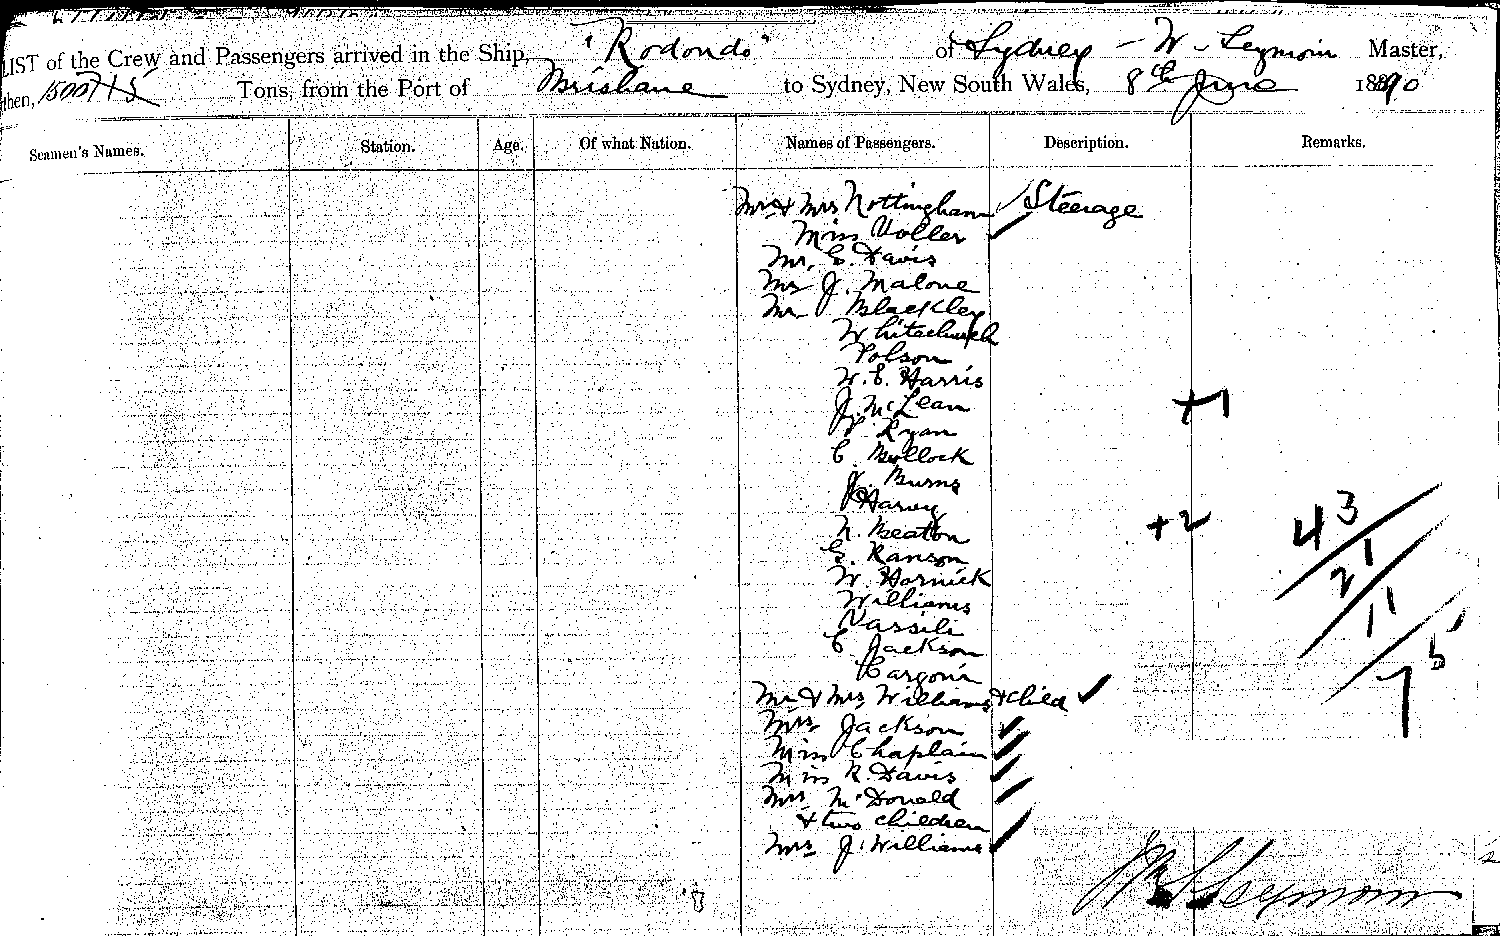 LIST of the Crew and Passengers arrived in the Ship, "Rodondo" of Sydney - W. Seymour Master,
then, Tons, from the Port of Brisbane to Sydney, New South Wales, 8th June 1890
Seamen's Names. Station. Age. Of what Nation. Names of Passengers. Description. Remarks.
Mr & Mrs Nottingham Steerage
Miss Voller
Mr, E. Davis
Mrs J. Malone
Mr Blackley
Whitechurch
Polson
W. E. Harris
J. McLean
+1
Ryan
C. Bullock
J. Burns
Harvey
N. Beaton
+2
43
G. Ranson
21
W. Harnick
Williams
11
Vassili
C Jackson
5
Mr & Mrs Williams & child
7
Mrs Jackson
Miss Chaplain
Miss R. Davis
Mrs McDonald
& two children
Mrs J. Williams
Seymour